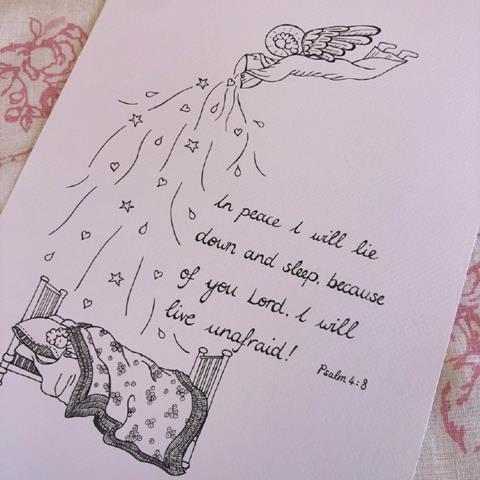 In peace I will lie
down and sleep, because
of you Lord, I will
live unafraid!
Psalm 4:8